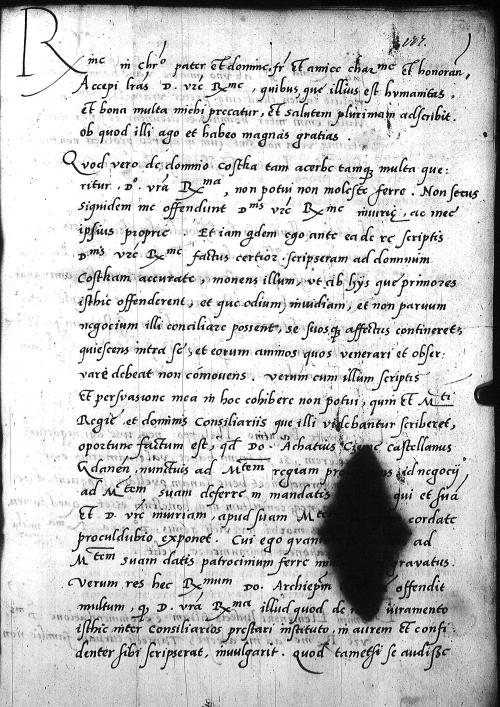 Rme in Chro pater Et domine, fr Et amice charme Et honoran,
Accepi lras D. vre Rme, quibus, que illius est humanitas,
Et bona multa michi preccatur, Et salutem plurimam adscribit.
ob quod illi ago et habeo magnas gratias
Quod vero de domino Costka tam acerbe tamq multa que:
ritur, Do. vra Rma, non potui non moleste ferre. Non secus
siquidem me offendunt Dnis vre Rme iniurie, ac mee
ipsius proprie. Et iam qdem ego ante ea de re scriptis
Dnis vre Rme factus certior scripseram ad dominum
Costkam accurate, monens illum, ut ab hijs que primores
isthic offenderent, et que odium, invidiam, et non paruum
negocium illi conciliare possent, se suosq affectus contineret,
quiescens intra se, et eorum animos quos venerari et obser:
vare debeat non comouens. verum cum illum scriptis
Et persvasione mea in hoc cohibere non potui, quin et Mti
Regie et dominis Consiliariis que illi videbantur scriberet,
oportune factum est, qd Do. Achatius castellanus
Gdanen, nunctuis ad Mtem regeam id negocij
ad Mtem suam deferre in mandatis qui et suā
Et D. vre iniuriam, apud suam cordate
proculdubio exponet. Cui ego ad
Mtem suam datis patrocinium ferre gravatus.
Verum res hec Rmum Do. Archiepm offendit
multum, q, D. vra Rma illud quod de iuramento
isthic inter Consiliarios prestari instituto, in aurem Et confi:
denter sibi scripserat, invulgarit. Quod tametsi se audisse